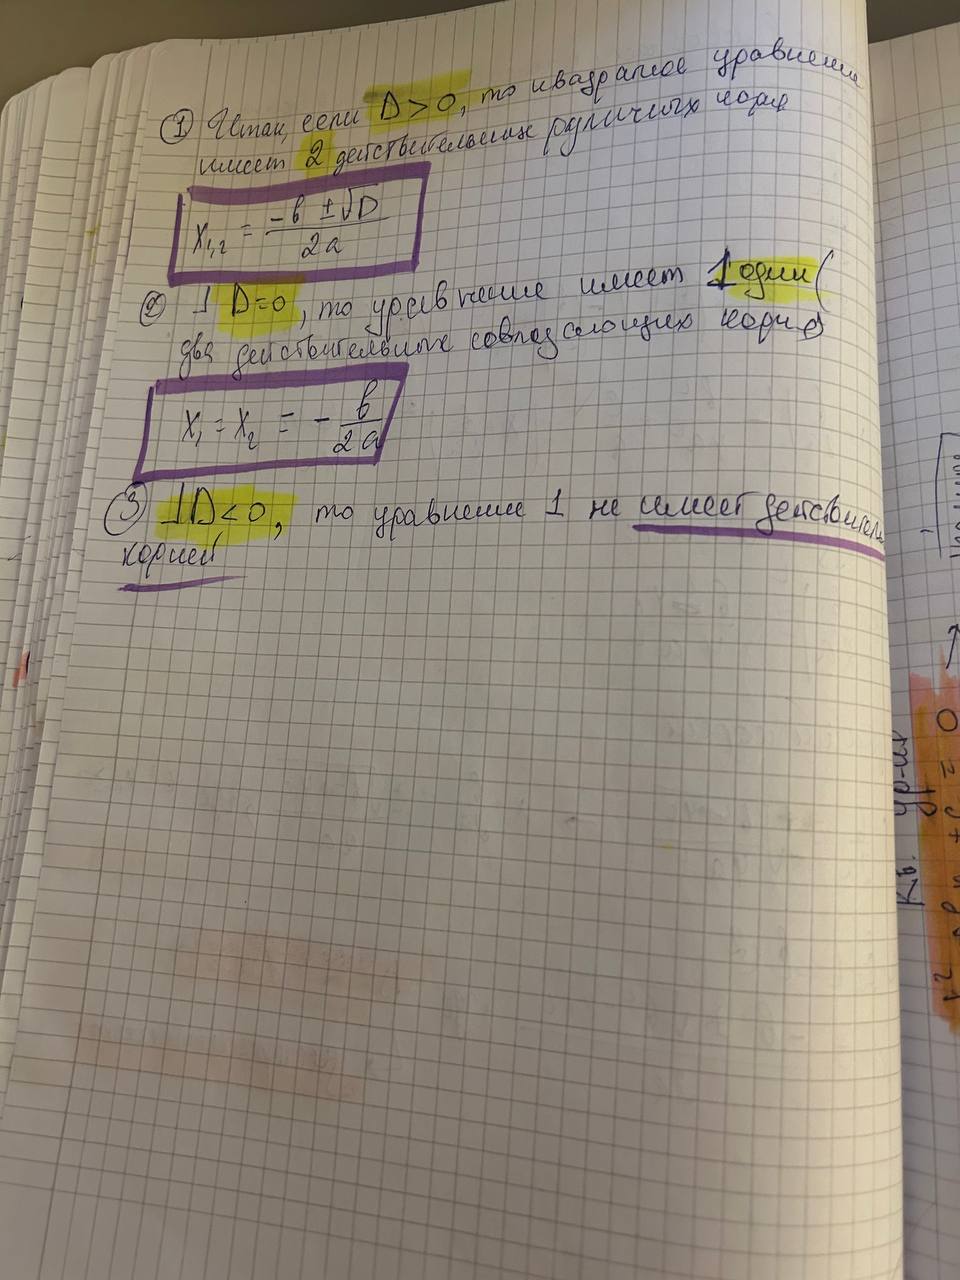 ① Итак, если D > 0, то квадратное уравнение
имеет 2 действительных различных корня
x₁,₂ = (-b ± √D) / 2a
② ⊥ D=0, то уравнение имеет 1 один (
два действительных совпадающих корня
x₁ = x₂ = - b / 2a
③ ⊥ D < 0, то уравнение 1 не имеет действительн
корней
Кв. ур-ия
= 0 →